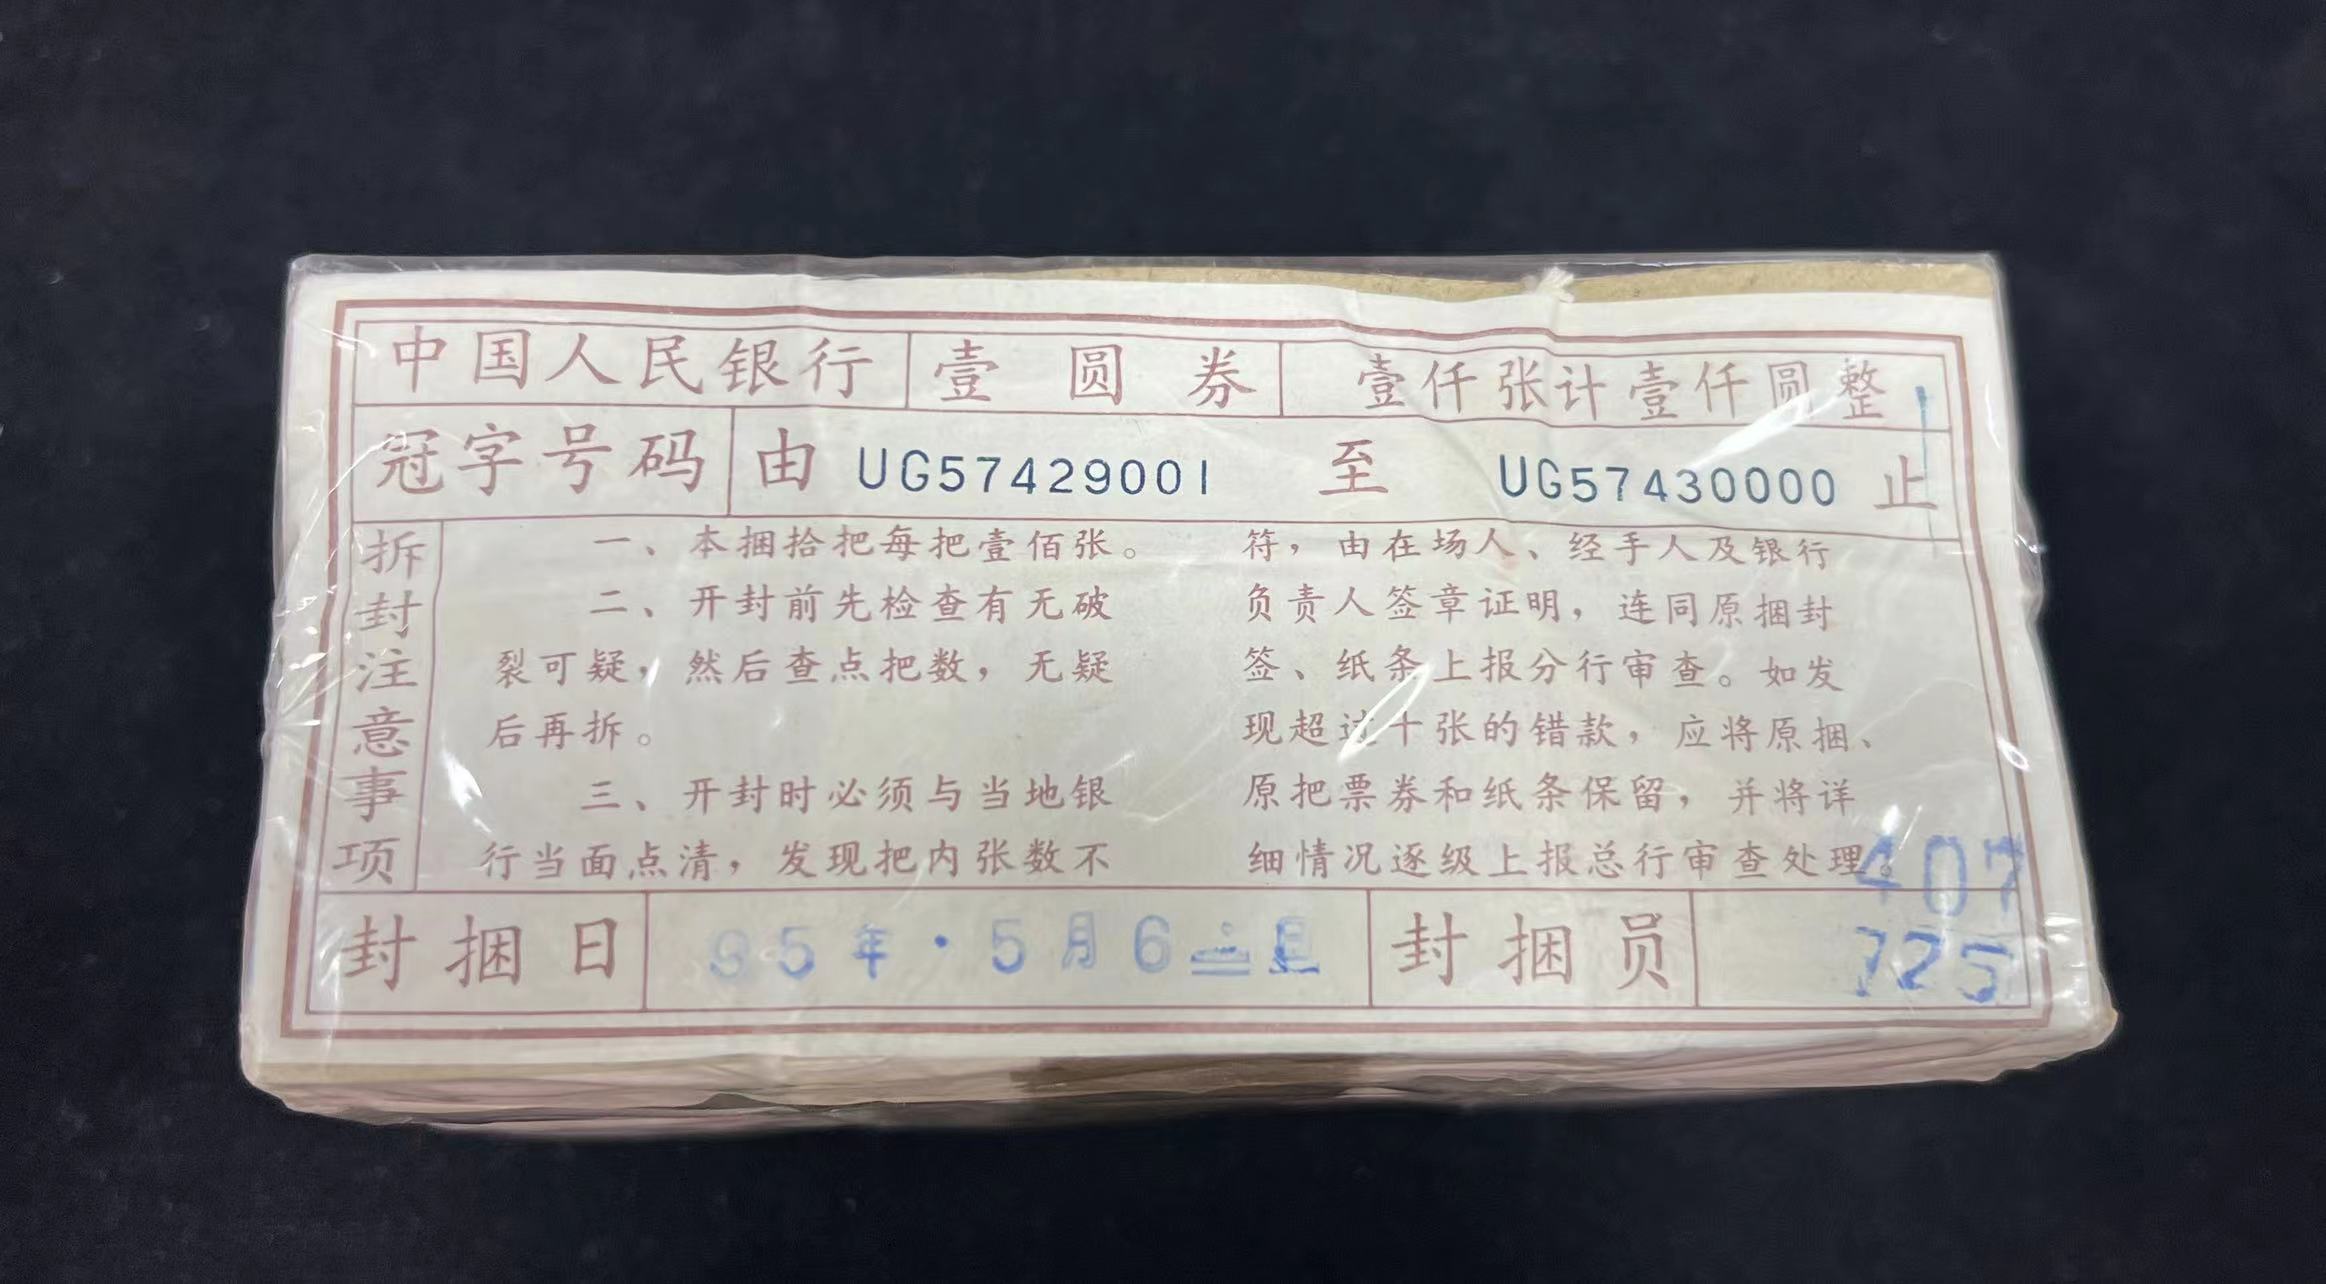 中国人民银行 壹圆券 壹仟张计壹仟圆整
冠字号码 由 UG57429001 至 UG57430000 止
拆封注意事项
一、本捆拾把每把壹佰张。
二、开封前先检查有无破
裂可疑，然后查点把数，无疑
后再拆。
三、开封时必须与当地银
行当面点清，发现把内张数不
符，由在场人、经手人及银行
负责人签章证明，连同原捆封
签、纸条上报分行审查。如发
现超过十张的错款，应将原捆、
原把票券和纸条保留，并将详
细情况逐级上报总行审查处理。
封捆日 95年·5月6 封捆员 407
725